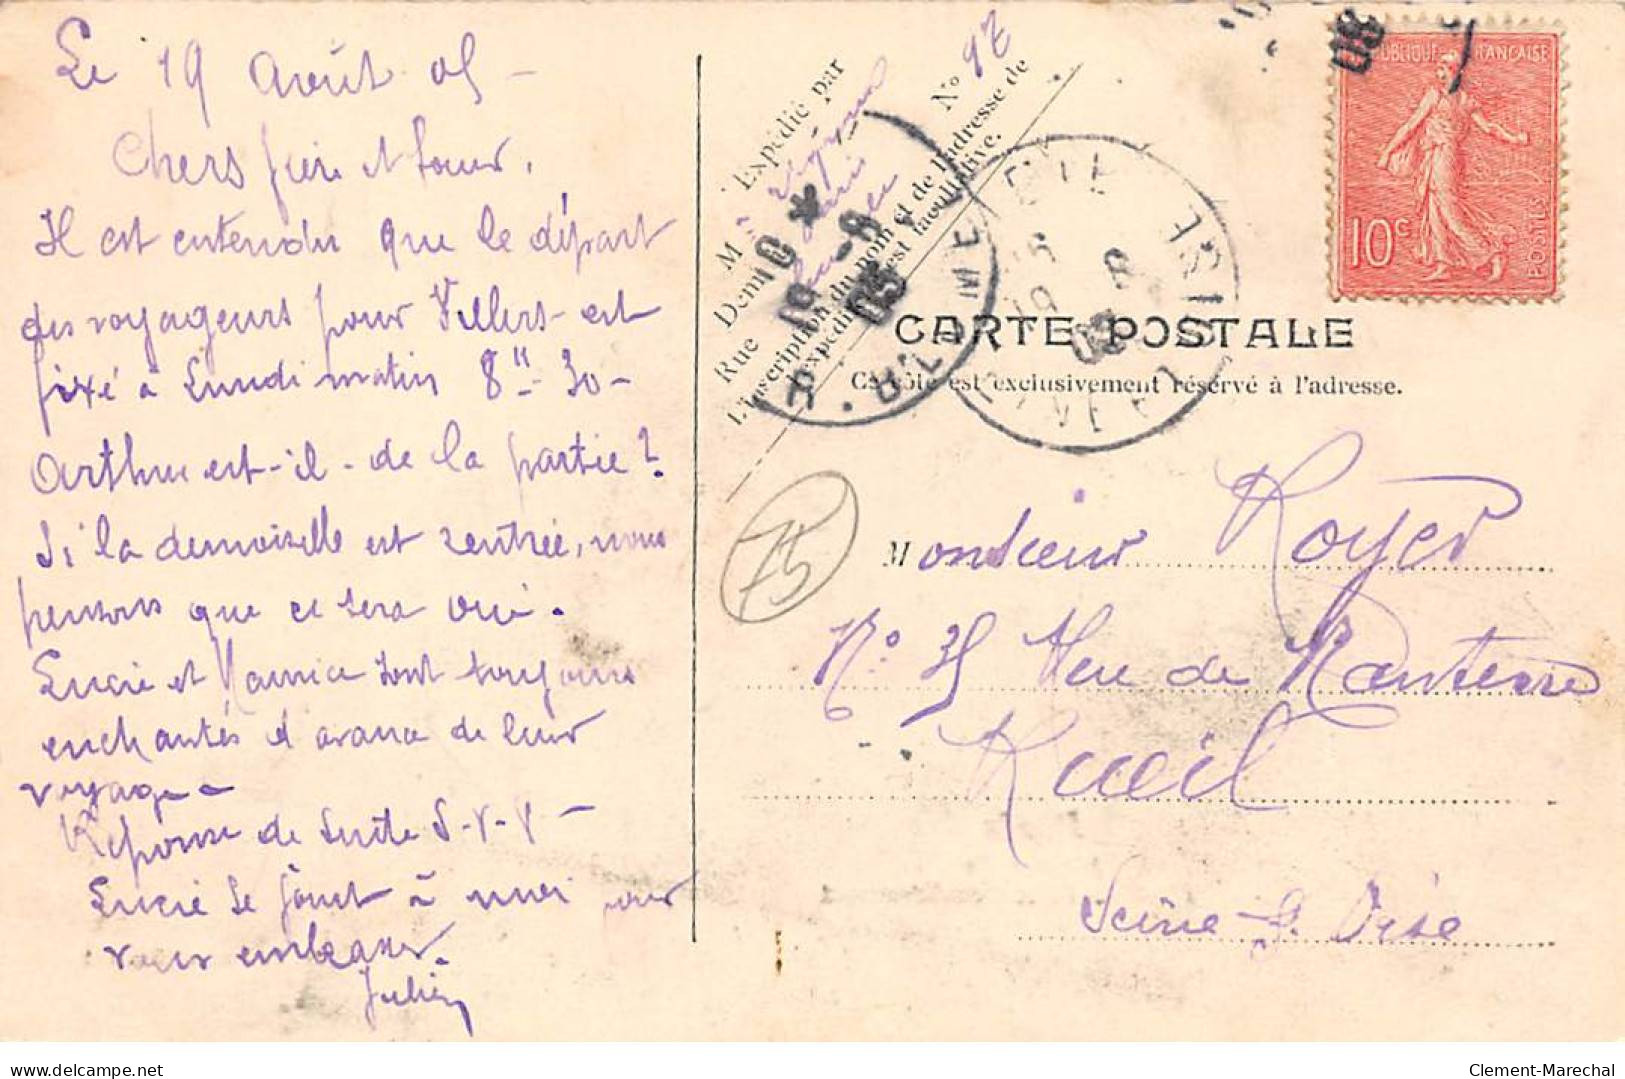 Le 19 Août 05 -
Chers frère et soeur,
Il est entendu que le départ
des voyageurs pour Villers - est
fixé à Lundi matin 8" - 30 -
Arthur est-il - de la partie ?
Si la demoiselle est rentrée, nous
pensons que ce sera oui.
Lucie et Maurice sont toujours
enchantés d'avance de leur
voyage -
Réponse de suite S-V-P -
Lucie se joint à moi pour
vous embrasser.
Julien
Expédié par
M
Demt
Rue
No 97
L'inscription du nom et de l'adresse de
l'expéditeur est facultative.
RÉPUBLIQUE FRANÇAISE
10c
POSTES
CARTE POSTALE
Ce côté est exclusivement réservé à l'adresse.
75
Monsieur Royer
No 35 Rue de Nanterre
Rueil
Seine-&-Oise
delcampe.net
Clement-Marechal